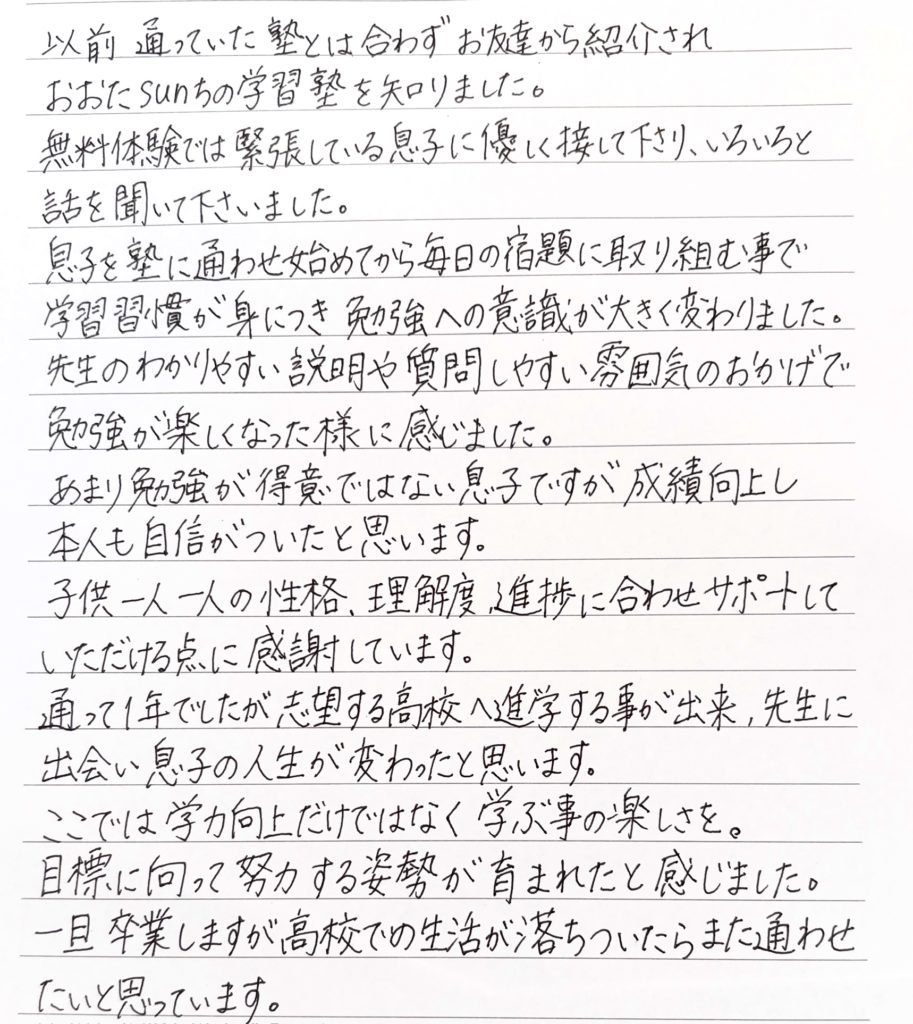 以前 通っていた 塾とは合わず お友達から紹介され
おおたsunちの学習塾を知りました。
無料体験では緊張している息子に優しく接して下さり、いろいろと
話を聞いて下さいました。
息子を塾に通わせ始めてから毎日の宿題に取り組む事で
学習習慣が身につき 勉強への意識が大きく変わりました。
先生のわかりやすい説明や質問しやすい雰囲気のおかげで
勉強が楽しくなった様に感じました。
あまり勉強が得意ではない息子ですが成績向上し
本人も自信がついたと思います。
子供一人一人の性格、理解度、進捗に合わせサポートして
いただける点に感謝しています。
通って1年でしたが志望する高校へ進学する事が出来,先生に
出会い息子の人生が変わったと思います。
ここでは学力向上だけではなく 学ぶ事の楽しさを。
目標に向って努力する姿勢が育まれたと感じました。
一旦卒業しますが高校での生活が落ちついたらまた通わせ
たいと思っています。